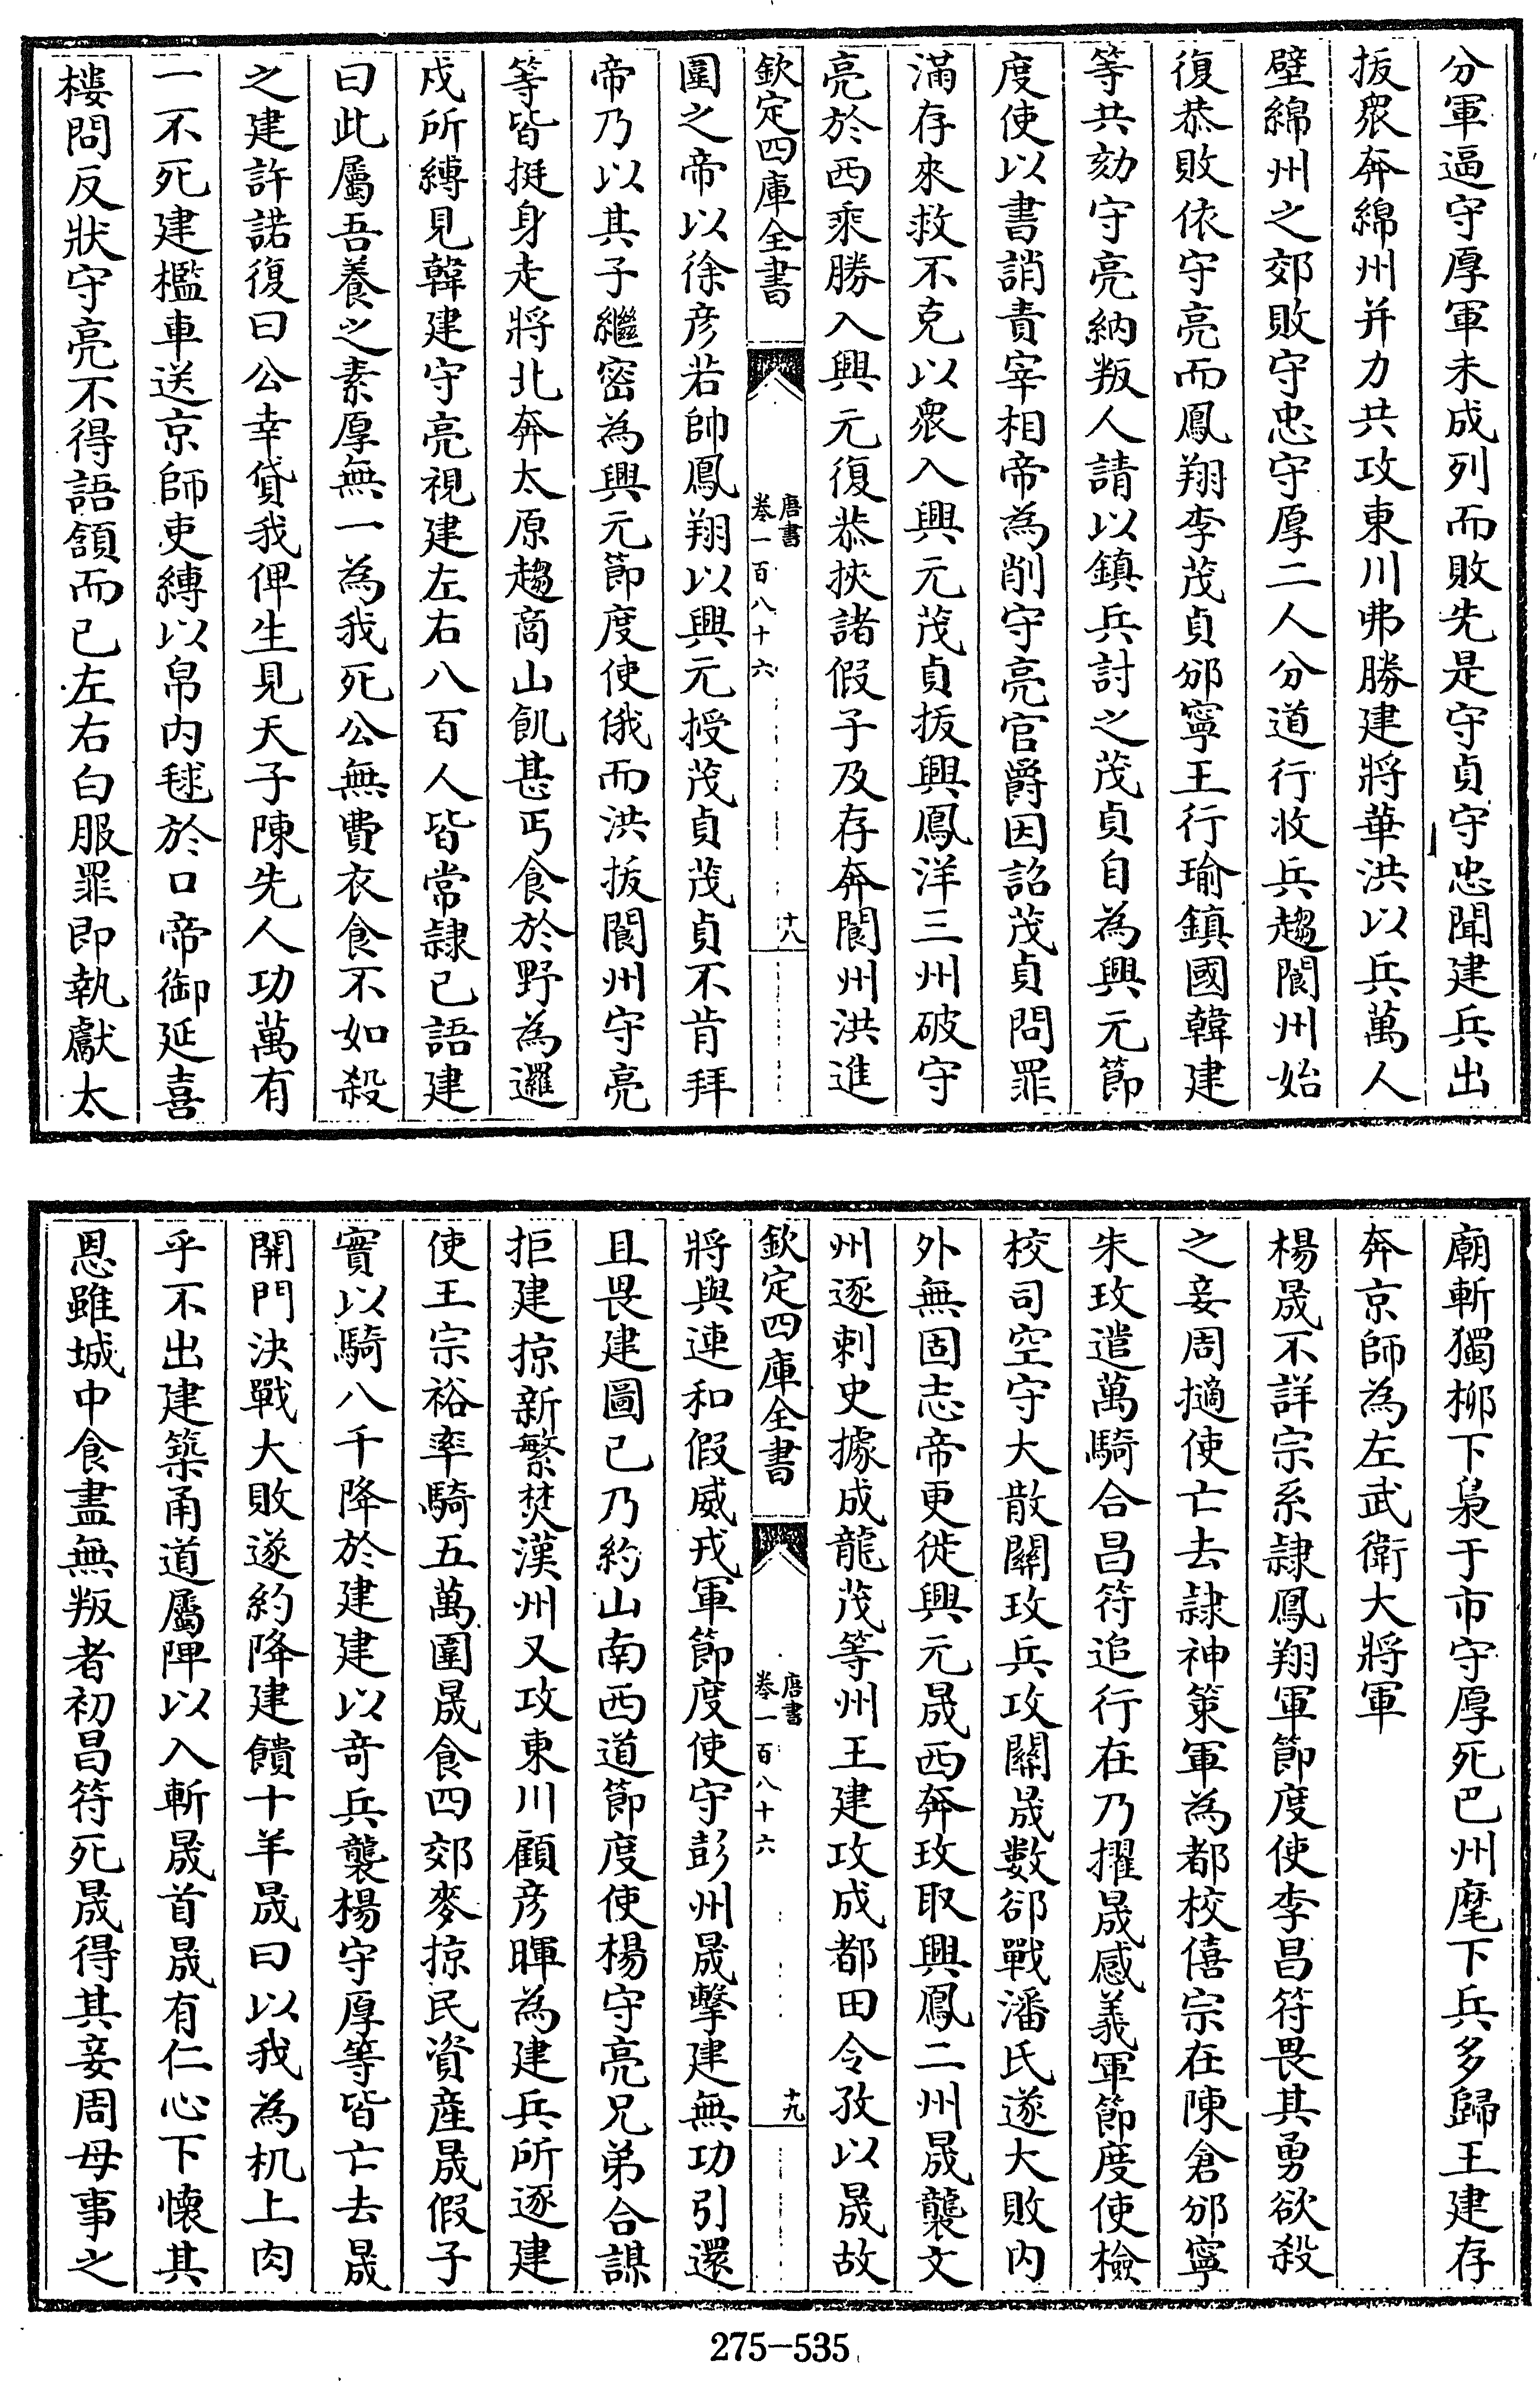 分軍逼守厚軍未成列而敗先是守貞守忠聞建兵出
拔眾奔綿州并力共攻東川弗勝建將華洪以兵萬人
壁綿州之郊敗守忠守厚二人分道行收兵趨閬州始
復恭敗依守亮而鳳翔李茂貞邠寧王行瑜鎮國韓建
等共劾守亮納叛人請以鎮兵討之茂貞自為興元節
度使以書誚責宰相帝為削守亮官爵因詔茂貞問罪
滿存來救不克以眾入興元茂貞拔興鳳洋三州破守
亮於西乘勝入興元復恭挾諸假子及存奔閬州洪進
欽定四庫全書
唐書
卷一百八十六
十八
圍之帝以徐彥若帥鳳翔以興元授茂貞茂貞不肯拜
帝乃以其子繼密為興元節度使俄而洪拔閬州守亮
等皆挺身走將北奔太原趨商山飢甚丐食於野為邏
戍所縛見韓建守亮視建左右八百人皆常隸已語建
曰此屬吾養之素厚無一為我死公無費衣食不如殺
之建許諾復曰公幸貸我俾生見天子陳先人功萬有
一不死建檻車送京師吏縛以帛內毬於口帝御延喜
樓問反狀守亮不得語頷而已左右白服罪即執獻太
廟斬獨柳下梟于市守厚死巴州麾下兵多歸王建存
奔京師為左武衛大將軍
楊晟不詳宗系隸鳳翔軍節度使李昌符畏其勇欲殺
之妾周擿使亡去隸神策軍為都校僖宗在陳倉邠寧
朱玫遣萬騎合昌符追行在乃擢晟感義軍節度使檢
校司空守大散關玫兵攻關晟數郤戰潘氏遂大敗內
外無固志帝更徙興元晟西奔玫取興鳳二州晟襲文
州逐刺史據成龍茂等州王建攻成都田令孜以晟故
欽定四庫全書
唐書
卷一百八十六
十九
將與連和假威戎軍節度使守彭州晟擊建無功引還
且畏建圖已乃約山南西道節度使楊守亮兄弟合謀
拒建掠新繁焚漢州又攻東川顧彥暉為建兵所逐建
使王宗裕率騎五萬圍晟食四郊麥掠民資產晟假子
實以騎八千降於建建以奇兵襲楊守厚等皆亡去晟
開門決戰大敗遂約降建饋十羊晟曰以我為机上肉
乎不出建築甬道屬陴以入斬晟首晟有仁心下懷其
恩雖城中食盡無叛者初昌符死晟得其妾周母事之
275-535